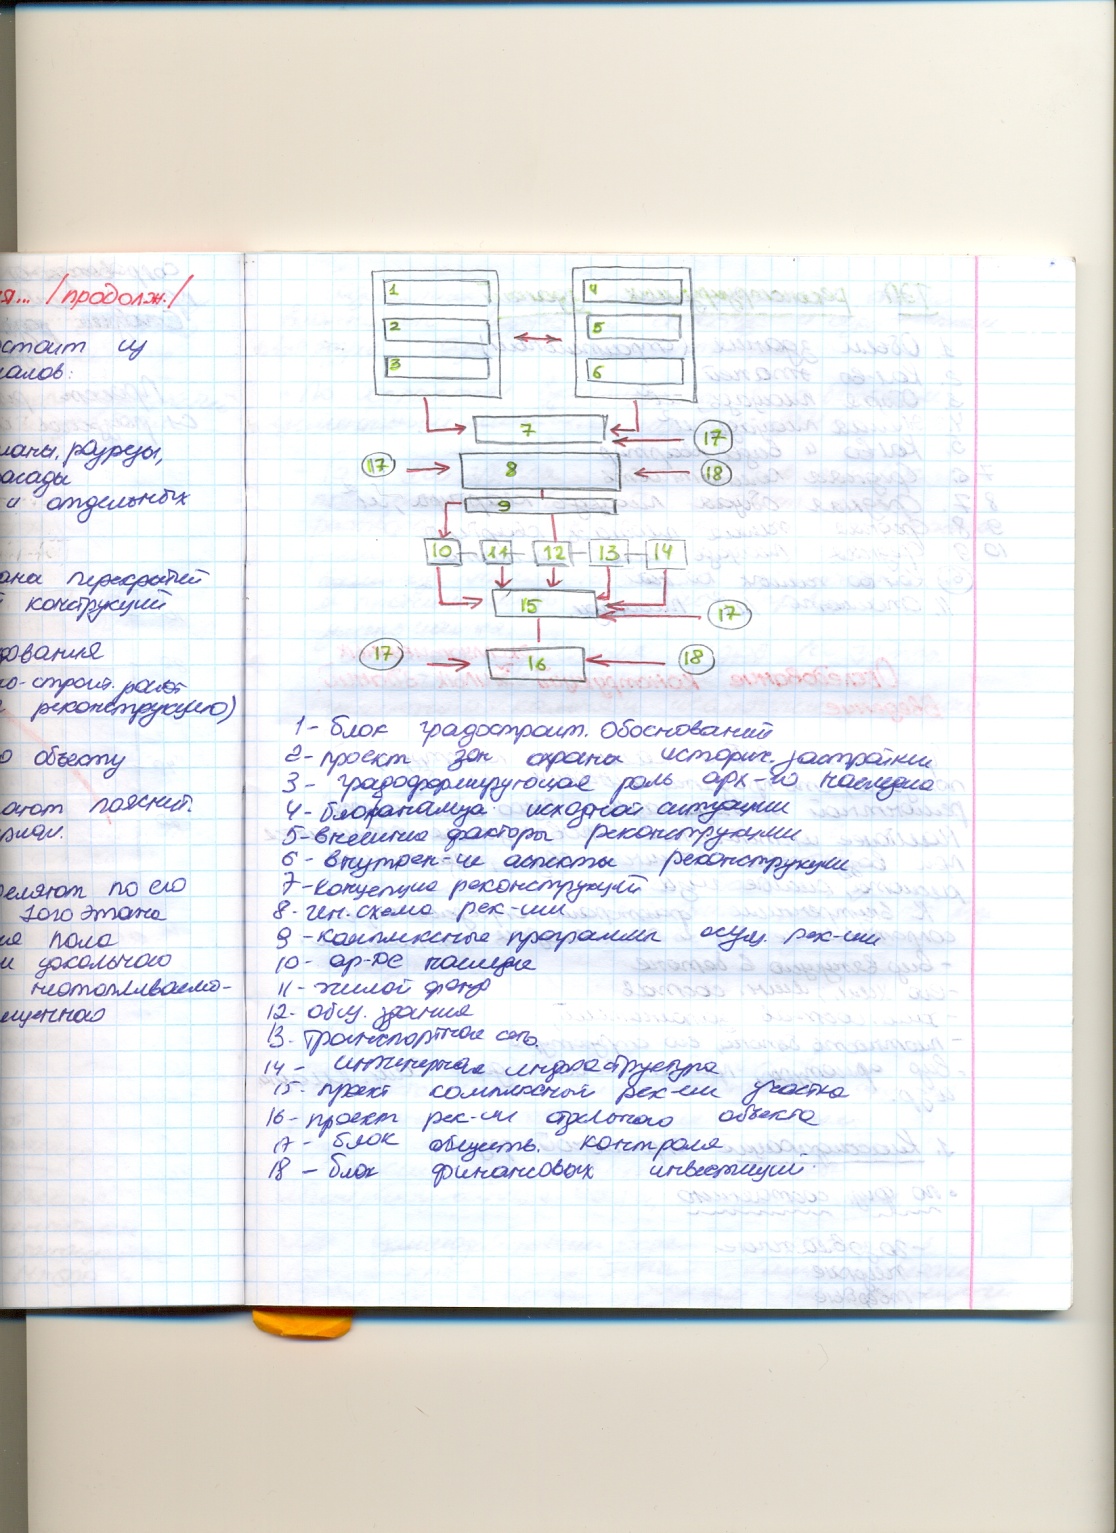 я... /продолж./
стоит из
алов:
ланы, разрезы,
фасады
и отдельных
ана перекрытий
й конструкций
дования
о-строит. работ
реконструкцию)
о объекту
ают поясний.
еляют по его
1ого этажа
ие пола
и цокольного
неотапливаемо-
ещенного
1
2
3
4
5
6
7
17
17
8
18
9
10
11
12
13
14
15
17
17
16
18
1 - блок градостроит. обоснований
2 - проект зон охраны историч. застройки
3 - градоформирующая роль арх-го наследия
4 - блок анализа исходной ситуации
5 - внешние факторы реконструкции
6 - внутрен-ие аспекты реконструкции
7 - концепция реконструкций
8 - ген. схема рек-ции
9 - комплексные программы осущ. рек-ции
10 - ар-ое наследие
11 - жилой фонд
12 - общ. здания
13 - транспортная сеть
14 - инженерная инфраструктура
15 - проект комплексный рек-ции участка
16 - проект рек-ции отдельного объекта
17 - блок обществ. контроля
18 - блок финансовых инвестиций.